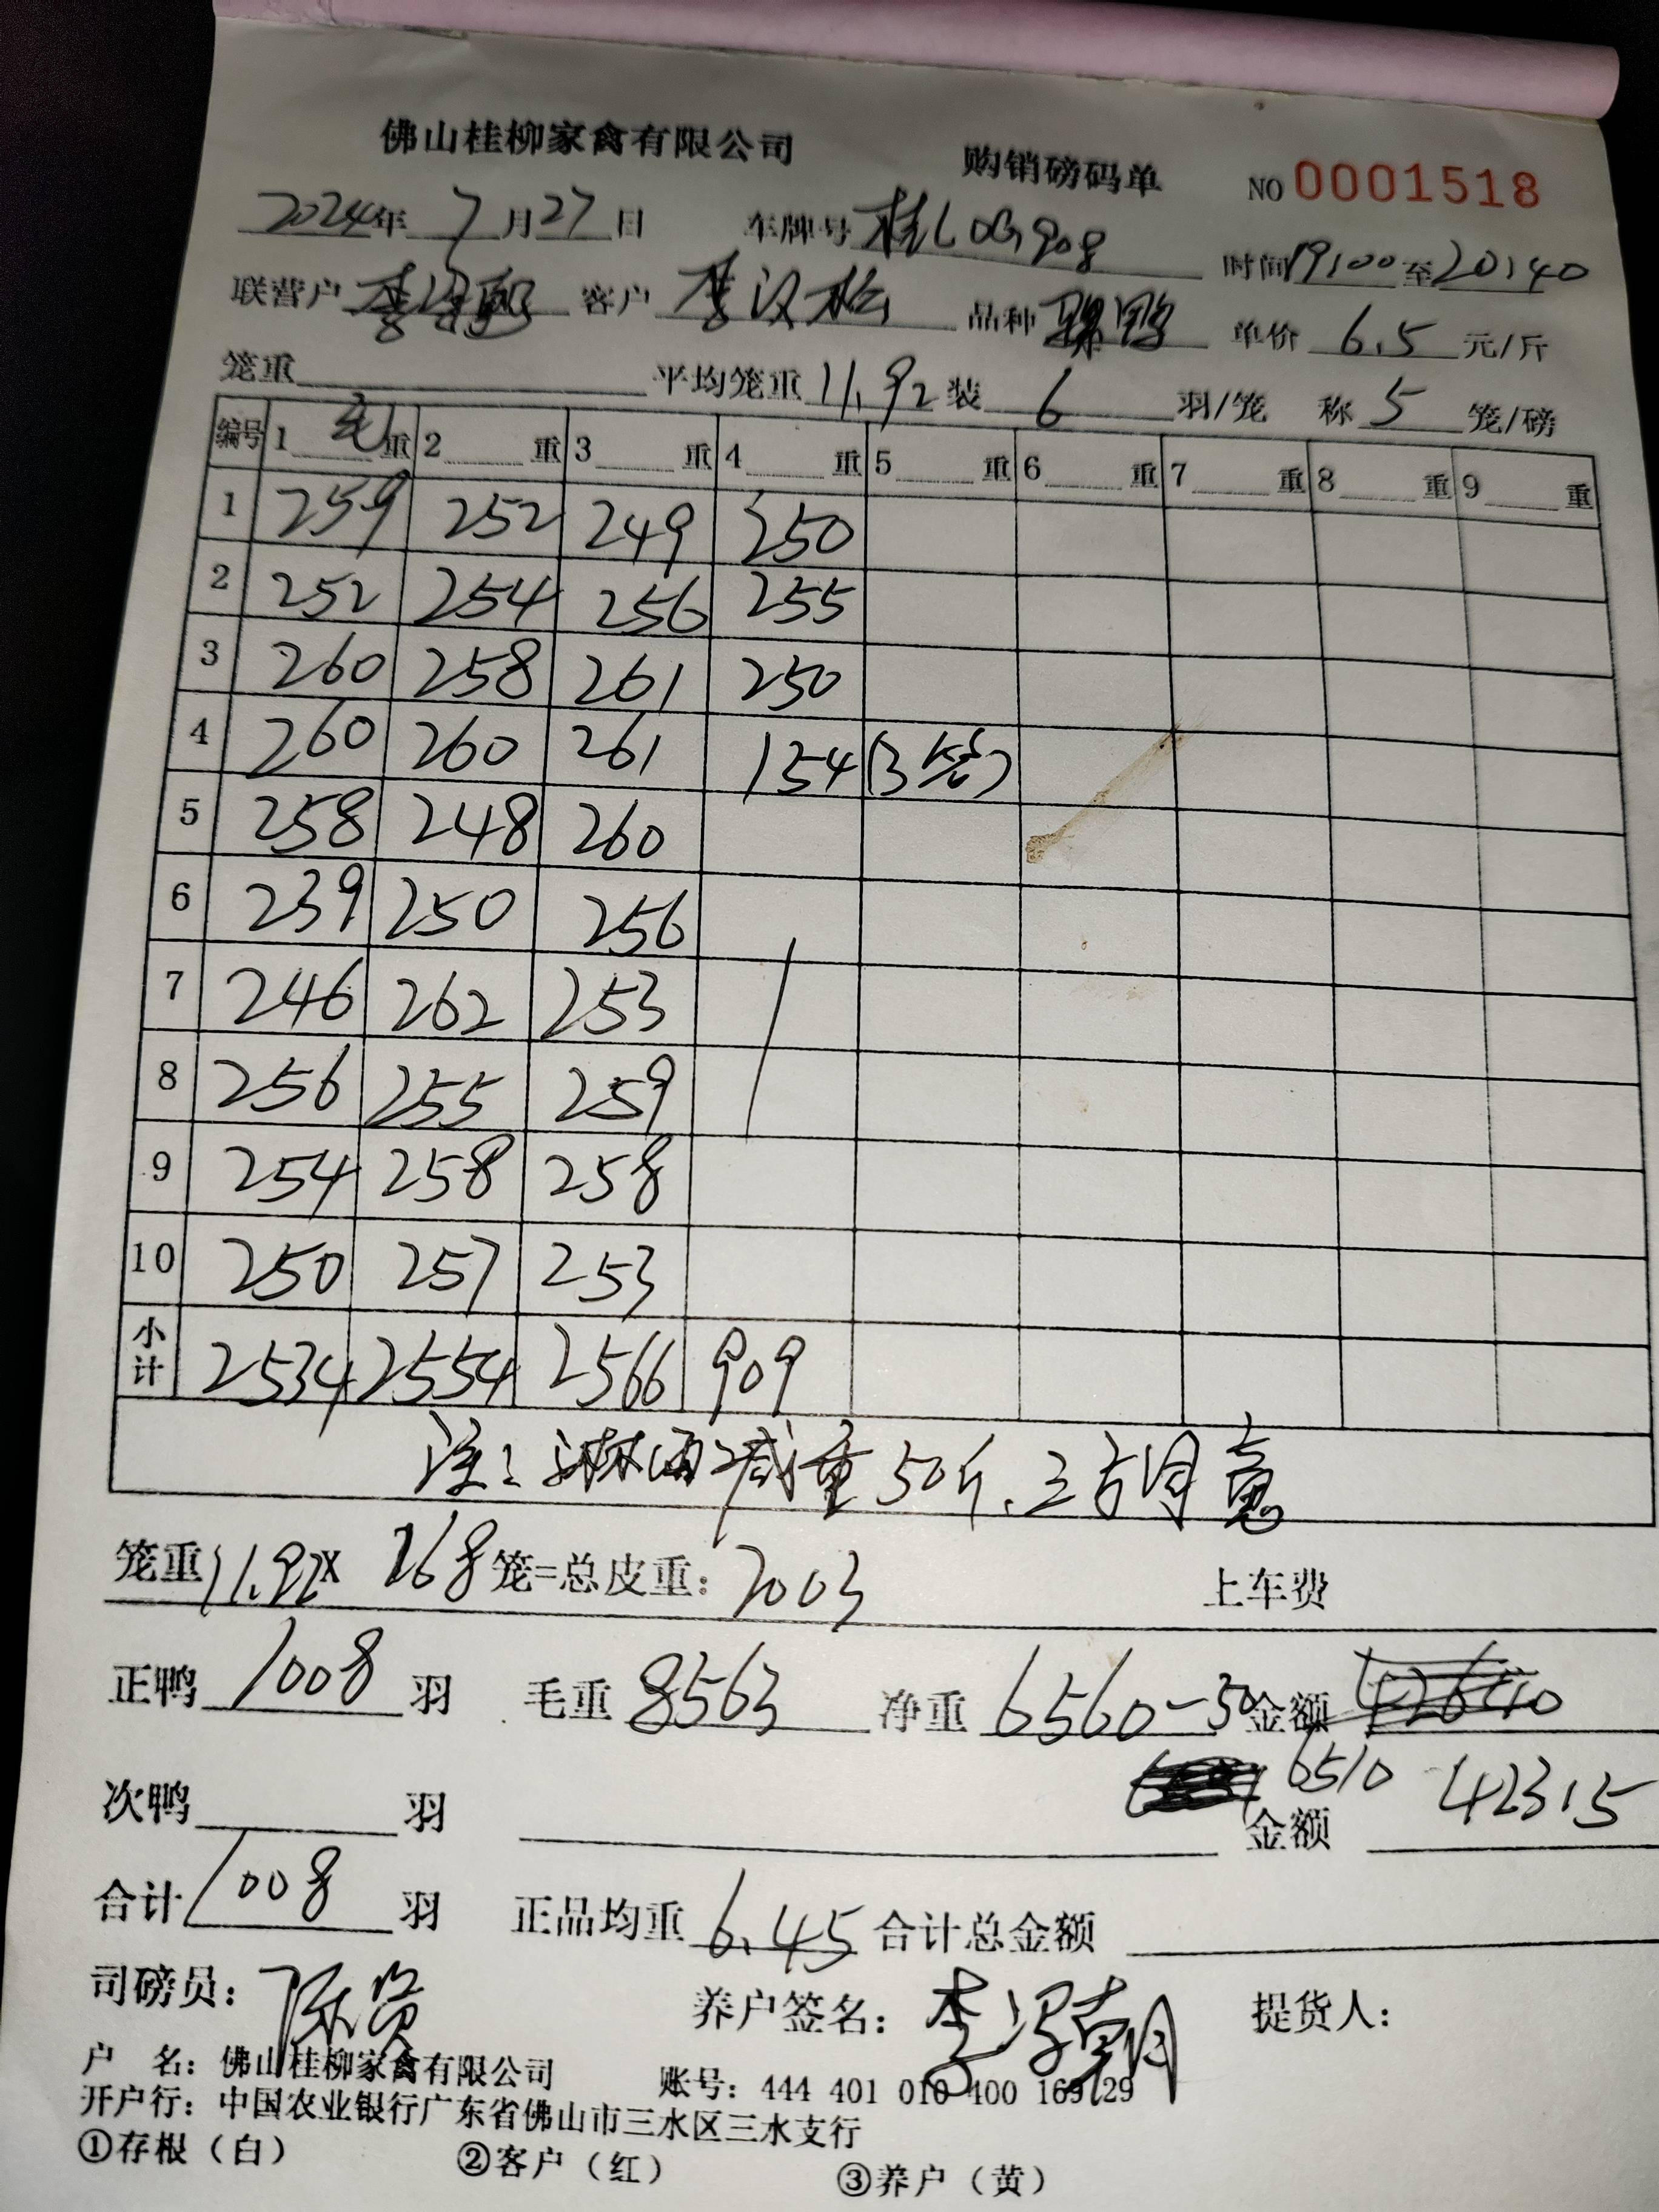 佛山桂柳家禽有限公司 购销磅码单 NO 0001518
2024年 7月27日 车牌号 时间19:00至20:40
联营户 李 客户 李汉松 品种 单价 6.5 元/斤
笼重 平均笼重 11.92 装 6 羽/笼 称 5 笼/磅
编号 1 毛 重 2 重 3 重 4 重 5 重 6 重 7 重 8 重 9 重
1 259 252 249 250
2 252 254 256 255
3 260 258 261 250
4 260 260 261 154 (3笼)
5 258 248 260
6 239 250 256
7 246 262 253
8 256 255 259
9 254 258 258
10 250 257 253
小计 2534 2554 2566 909
注：淋雨减重50斤、三方同意
笼重 11.92 X 168 笼=总皮重: 2003 上车费
正鸭 1008 羽 毛重 8563 净重 6560-50 金额 42640
6510 42315
次鸭 羽 金额
合计 1008 羽 正品均重 6.45 合计总金额
司磅员: 陈 养户签名: 李 朝 提货人:
户 名: 佛山桂柳家禽有限公司 账号: 444 401 010 400 169 29
开户行: 中国农业银行广东省佛山市三水区三水支行
①存根（白） ②客户（红） ③养户（黄）